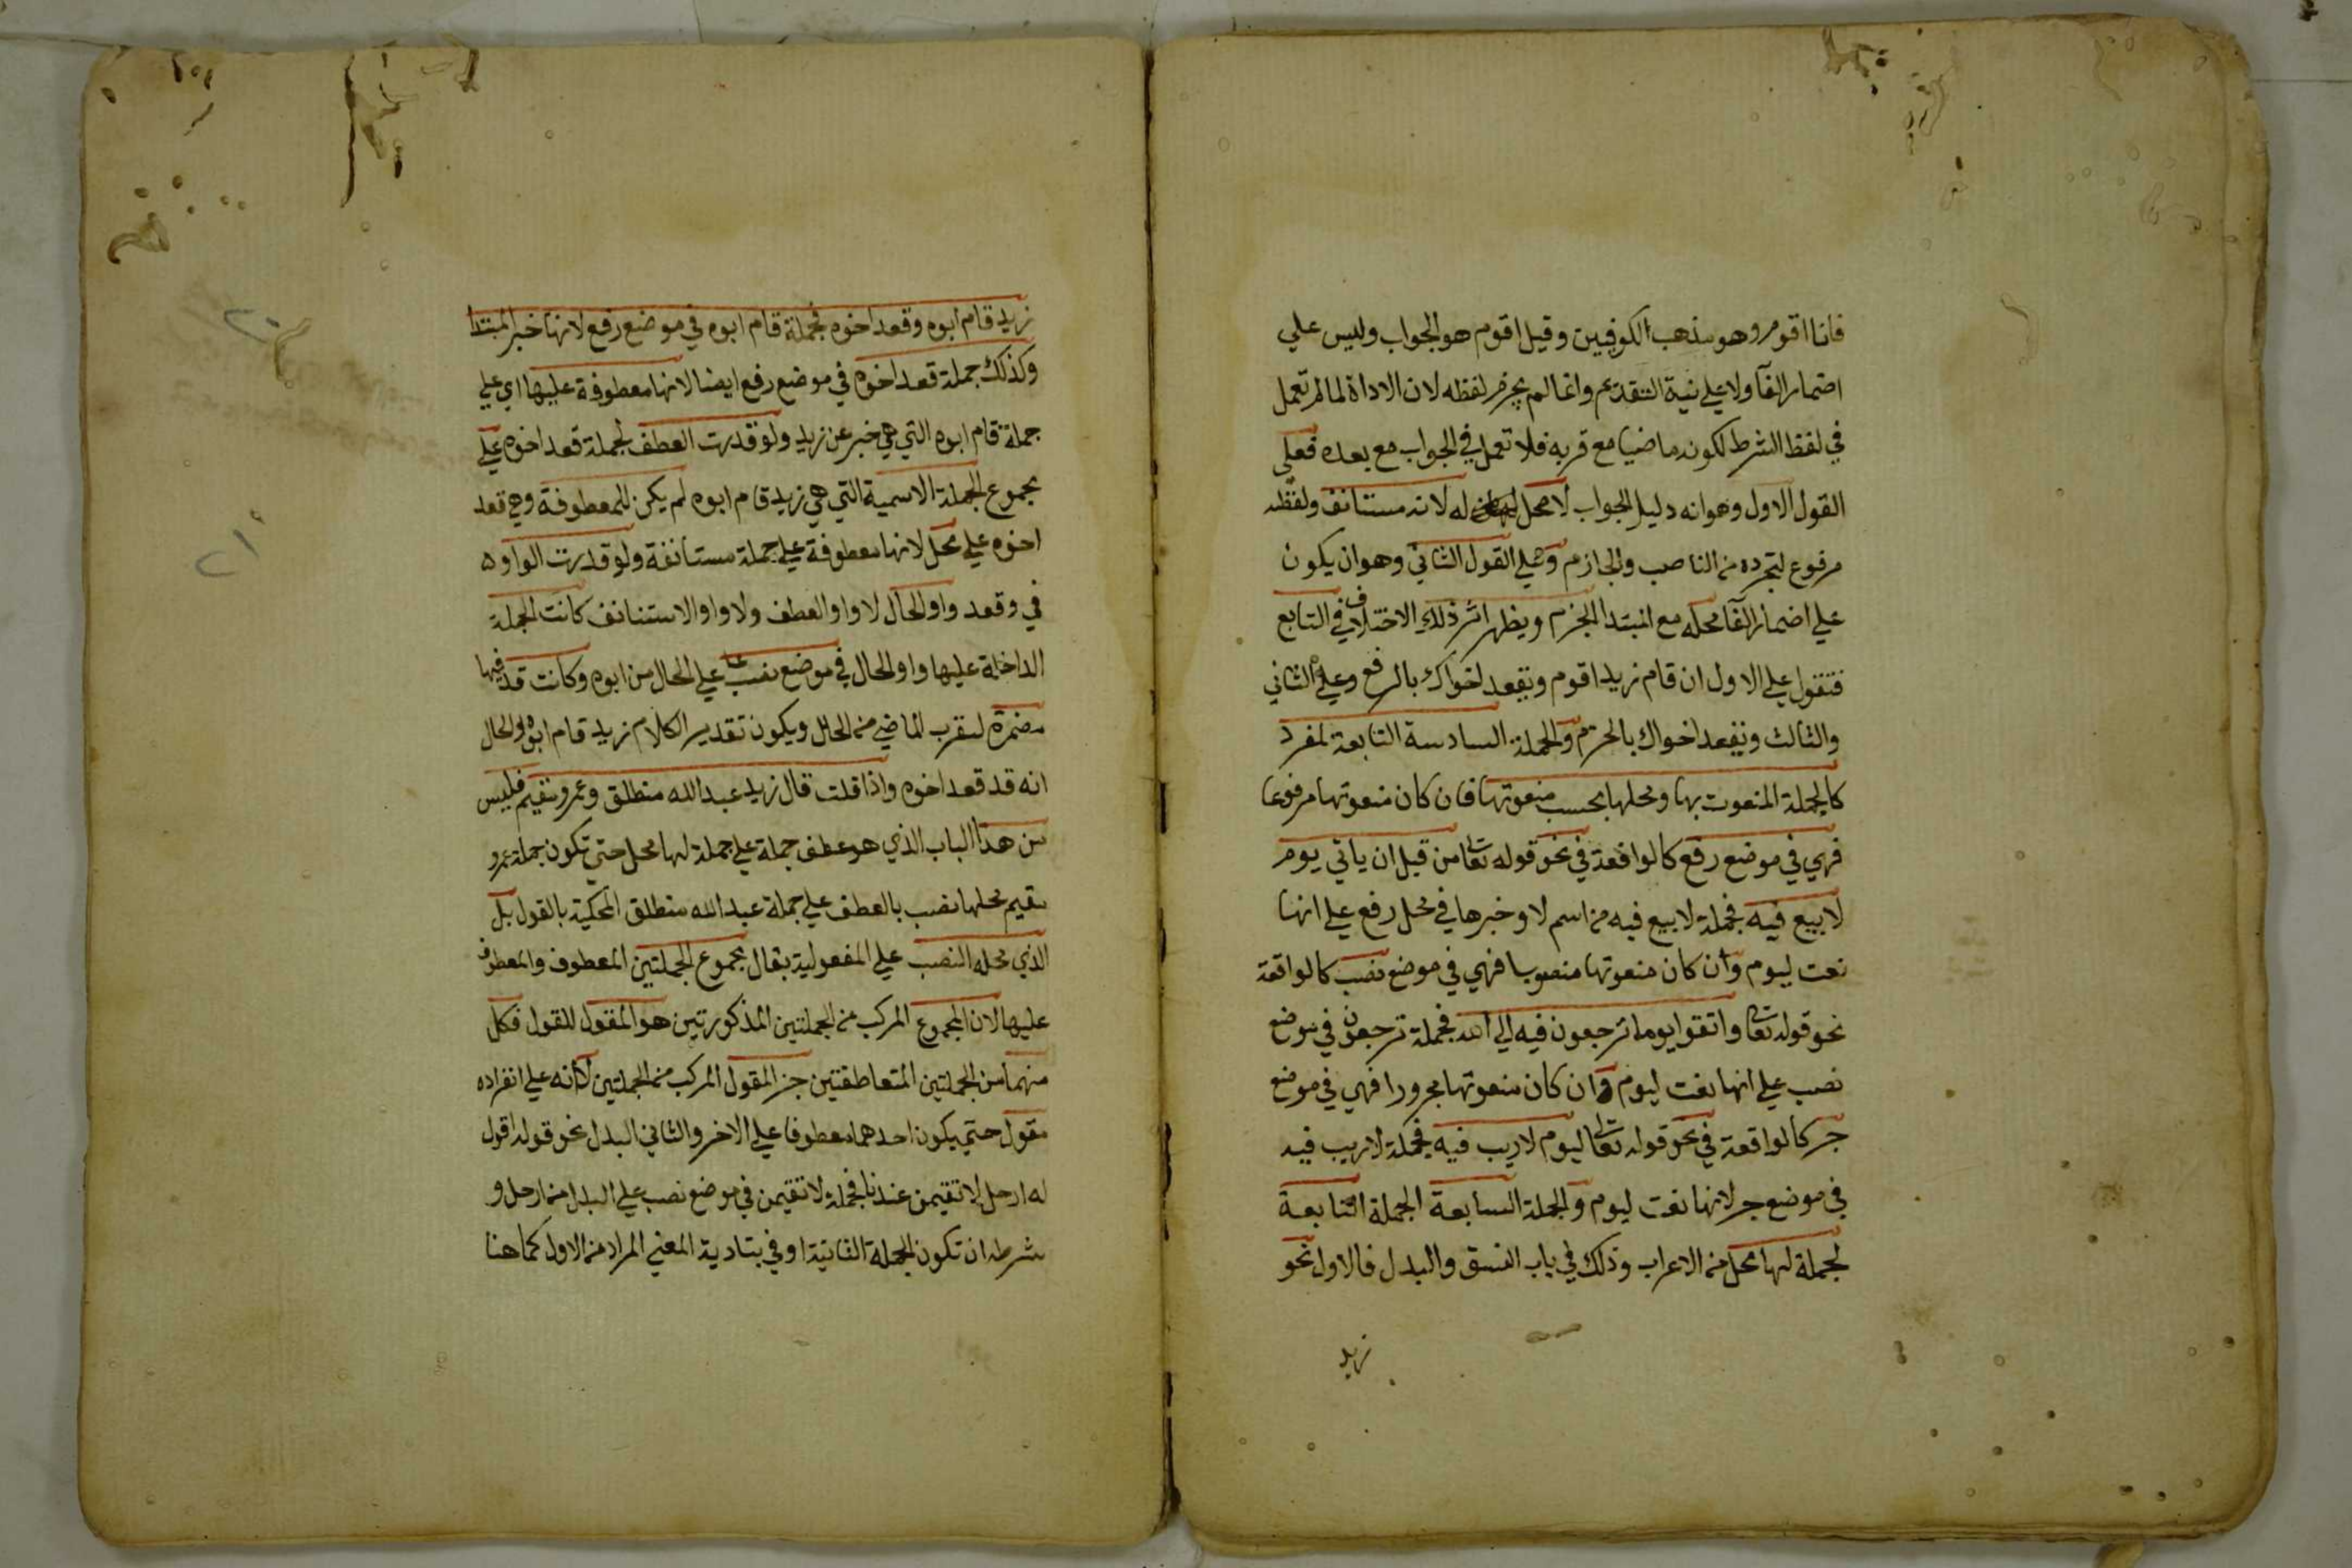 فانا اقوم وهو مذهب الكوفيين وقيل اقوم هو الجواب وليس علي
اضمار الفآ ولا علي نية التقديم وانما لم يجزم لفظه لان الاداة لما لم تعمل
في لفظ الشرط لكونه ماضيا مع قربه فلا تعمل في الجواب مع بعده فعلي
القول الاول وهو انه دليل الجواب لا محل له لانه مستانف ولفظه
مرفوع لتجرده من الناصب والجازم وعلي القول الثاني وهو ان يكون
علي اضمار الفآ محله مع المبتدا الجزم ويظهر اثر ذلك الاختلاف في التابع
فتقول علي الاول ان قام زيد اقوم ويقعد اخواك بالرفع وعلي الثاني
والثالث ويقعد اخواك بالجزم والجملة السادسة التابعة لمفرد
كالجملة المنعوت بها ومحلها بحسب منعوتها فان كان منعوتها مرفوعا
فهي في موضع رفع كالواقعة في نحو قوله تعا من قبل ان ياتي يوم
لا بيع فيه فجملة لا بيع فيه من اسم لا وخبرها في محل رفع علي انها
نعت ليوم وان كان منعوتها منصوبا فهي في موضع نصب كالواقعة
نحو قوله تعا واتقوا يوما ترجعون فيه الي الله فجملة ترجعون في موضع
نصب علي انها نعت ليوم وان كان منعوتها مجرورا فهي في موضع
جر كالواقعة في نحو قوله تعا ليوم لا ريب فيه فجملة لا ريب فيه
في موضع جر لانها نعت ليوم والجملة السابعة الجملة التابعة
لجملة لها محل من الاعراب وذلك في باب النسق والبدل فالاول نحو
زيد
زيد قام ابوه وقعد اخوه فجملة قام ابوه في موضع رفع لانها خبر المبتدا
وكذلك جملة قعد اخوه في موضع رفع ايضا لانها معطوفة عليها اي علي
جملة قام ابوه التي هي خبر عن زيد ولو قدرت العطف لجملة قعد اخوه علي
مجموع الجملة الاسمية التي هي زيد قام ابوه لم يكن للمعطوفة وهي قعد
اخوه علي محل لانها معطوفة علي جملة مستانفة ولو قدرت الواو
في وقعد واو الحال لا واو العطف ولا واو الاستئناف كانت الجملة
الداخلة عليها واو الحال في موضع نصب علي الحال من ابوه وكانت قد فيها
مضمرة لتقرب الماضي من الحال ويكون تقدير الكلام زيد قام ابوه والحال
انه قد قعد اخوه واذا قلت قال زيد عبد الله منطلق وعمرو مقيم فليس
من هذا الباب الذي هو عطف جملة علي جملة لها محل حتي تكون جملة عمرو
مقيم محلها نصب بالعطف علي جملة عبد الله منطلق المحكية بالقول بل
الذي محله النصب علي المفعولية بقال مجموع الجملتين المعطوف والمعطوف
عليها لان المجموع المركب من الجملتين المذكورتين هو المقول للقول فكل
منهما من الجملتين المتعاطفتين جز المقول المركب من الجملتين لا انه علي انفراده
مقول حتي يكون احدهما معطوفا علي الاخر والثاني البدل نحو قوله اقول
له ارحل لا تقيمن عندنا فجملة لا تقيمن في موضع نصب علي البدل من ارحل و
شرطه ان تكون الجملة الثانية اوفي بتادية المعني المراد من الاول كما هنا